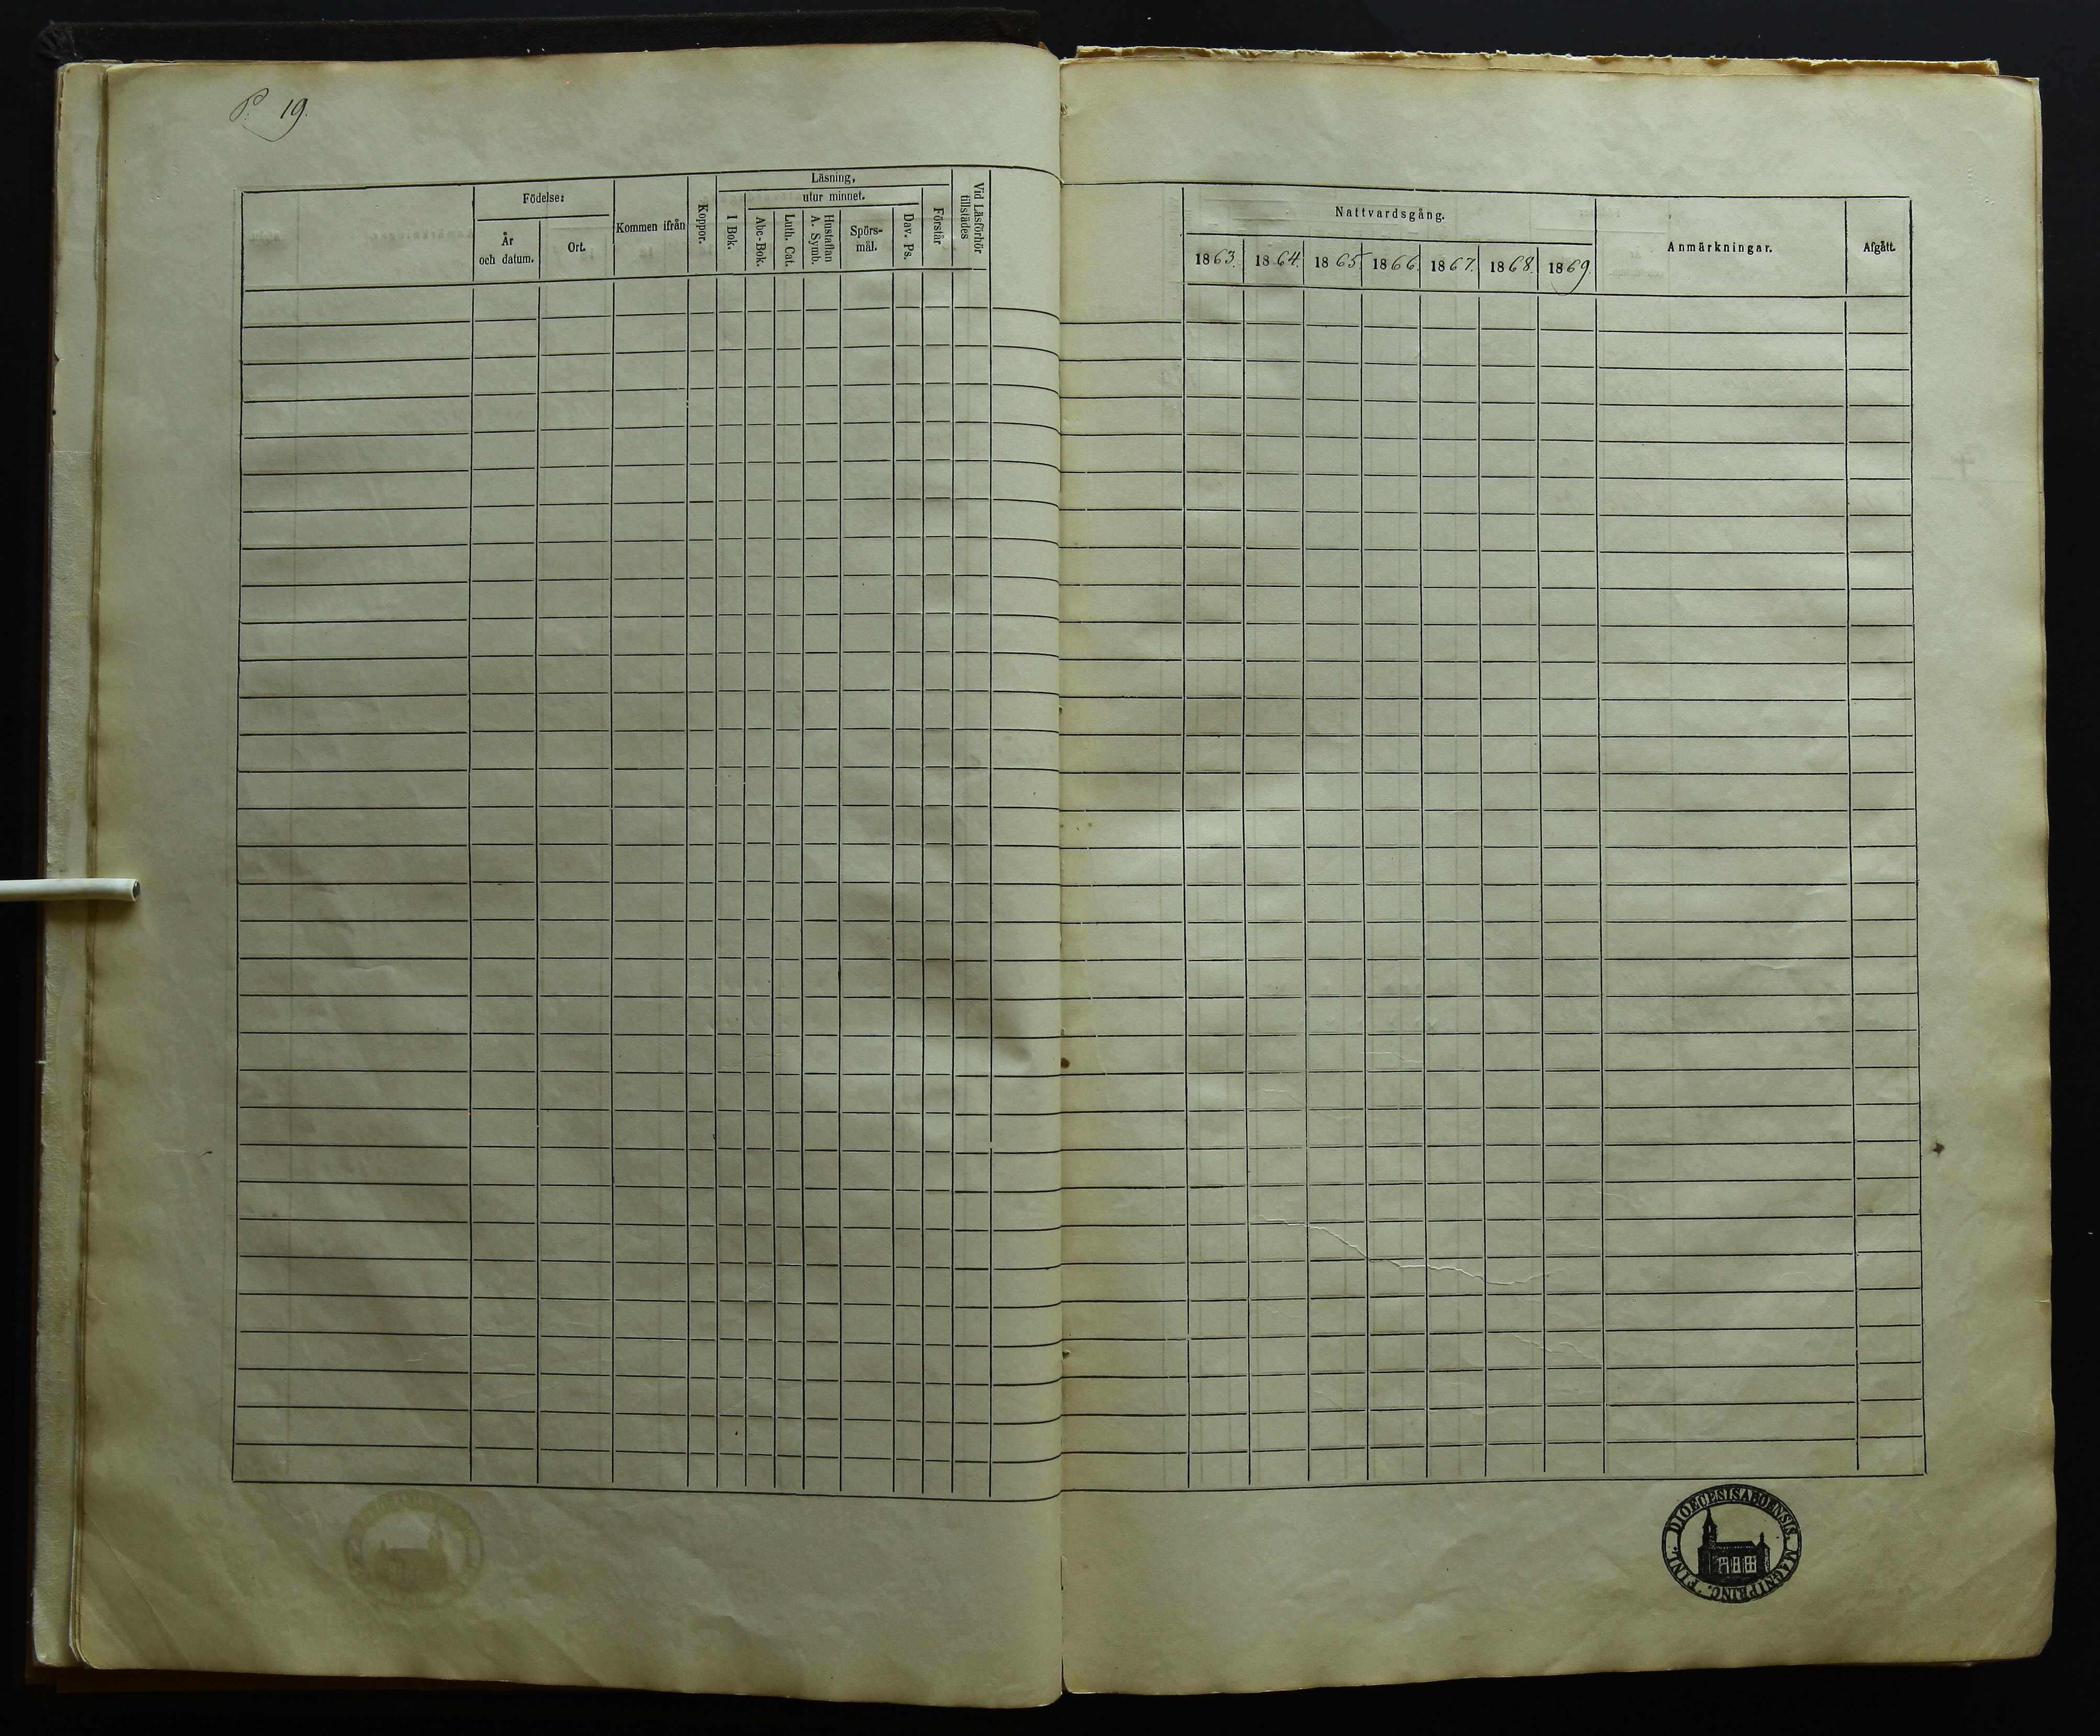 P. 19.
Födelse:
År
och datum.
Ort.
Kommen ifrån
Koppor.
Läsning,
utur minnet.
I Bok.
Abc-Bok.
Luth. Cat.
Hustaflan
A. Symb.
Spörs-
mål.
Dav. Ps.
Förstår
Vid Läsförhör
tillstädes
Nattvardsgång.
1863. 1864. 1865. 1866. 1867. 1868. 1869.
Anmärkningar.
Afgått.
DIOECESIS ABOENSIS. MAGNI PRINC. FINL.